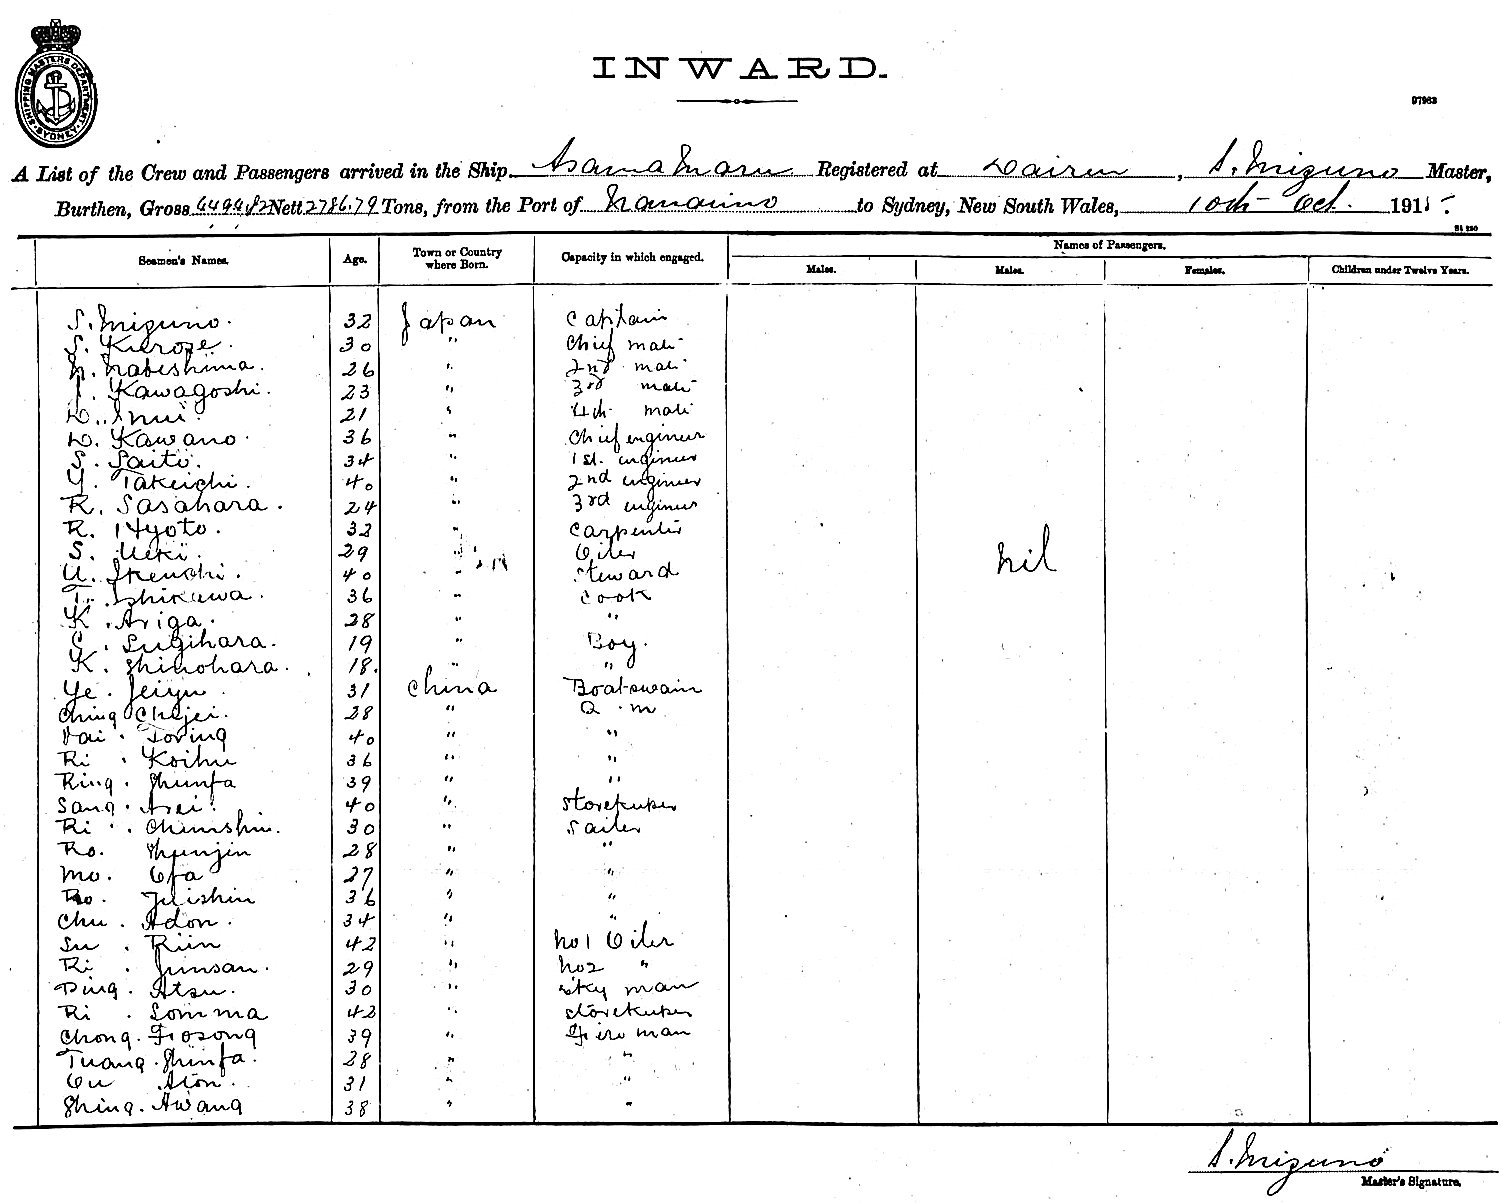 SHIPPING MASTERS DEPARTMENT SYDNEY
INWARD.
D7963
A List of the Crew and Passengers arrived in the Ship Asama Maru Registered at Dairen, S. Mizuno Master,
Burthen, Gross Nett 2786.79 Tons, from the Port of Nanaimo to Sydney, New South Wales, 10th Oct. 1915.
Seamen's Names. Age. Town or Country where Born. Capacity in which engaged. Names of Passengers.
Males. Males. Females. Children under Twelve Years.
S. Mizuno. 32 Japan Captain
S. Kurose. 30 " Chief mate
N. Nabeshima. 26 " 2nd mate
Kawagoshi. 23 " 3rd mate
D. Inui. 21 " 4th mate
D. Kawano. 36 " Chief engineer
S. Saito. 34 " 1st. engineer
Y. Takeichi. 40 " 2nd engineer
R. Sasahara. 24 " 3rd engineer
R. Hyoto. 32 " Carpenter
S. Ueki. 29 " Oiler
U. Ikeuchi. 40 " Steward
T. Ishikawa. 36 " Cook
K. Ariga. 28 " "
C. Sugihara. 19 " Boy.
K. Shinohara. 18. " "
Ye. Jeiyu. 31 China Boatswain
Ching Chejei. 28 " Q. m
Vai. Toving 40 " "
Ri. Koihu 36 " "
Ring. Shunfa 39 " "
Sang. Asei. 40 " Storekeeper
Ri. Chinshin. 30 " Sailer
Ro. Shunjin 28 " "
Mo. Ofa 27 " "
Ro. Juishin 36 " "
Chu. Adon. 34 " "
Su. Riin 42 " No1 Oiler
Ri. Junsan. 29 " No2 "
Ding. Atsu. 30 " dky man
Ri. Somma 42 " storekeeper
Chong. Fosong 39 " Fireman
Tuang. Shinfa. 28 " "
Ou Aton. 31 " "
Shing. Awang 38 " "
nil
S. Mizuno
Master's Signature.